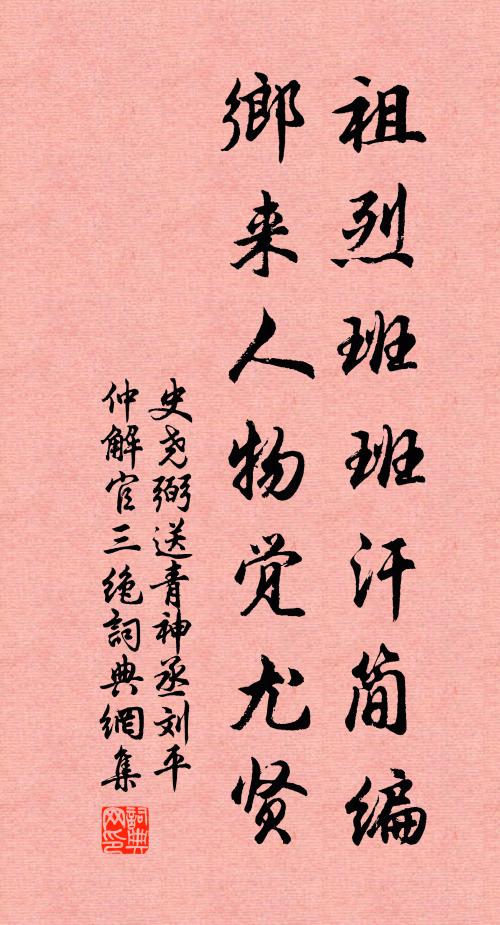 祖烈班班汗简编
鄉来人物觉尤贤
史尧弼送青神丞刘平
仲解官三绝詞典網集
詞典网印